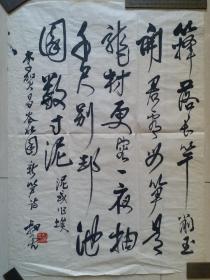 籜落长竿削玉
開君看母筍是
龍材更容一夜抽
千尺别却池
園數寸泥
泥或作埃
李賀昌谷北園新笋詩